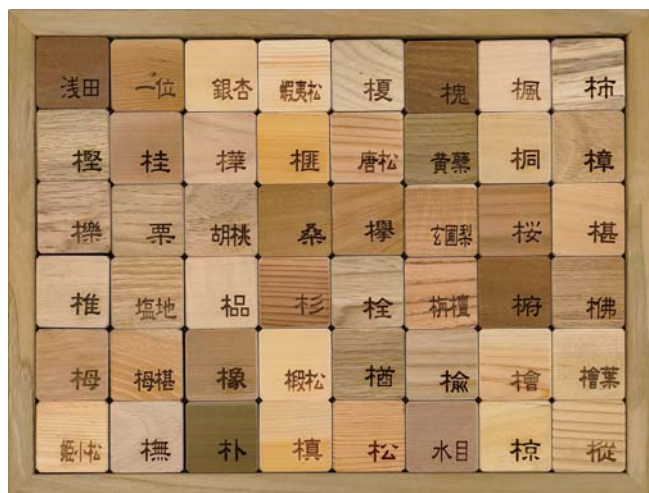 浅田 一位 銀杏 蝦夷松 榎 槐 楓 柿
樫 桂 樺 榧 唐松 黄蘗 桐 樟
櫟 栗 胡桃 桑 欅 玄圃梨 桜 椹
椎 塩地 榀 杉 栓 栴檀 椨 梻
栂 栂椹 橡 椴松 楢 楡 檜 檜葉
姫小松 橅 朴 槙 松 水目 椋 樅